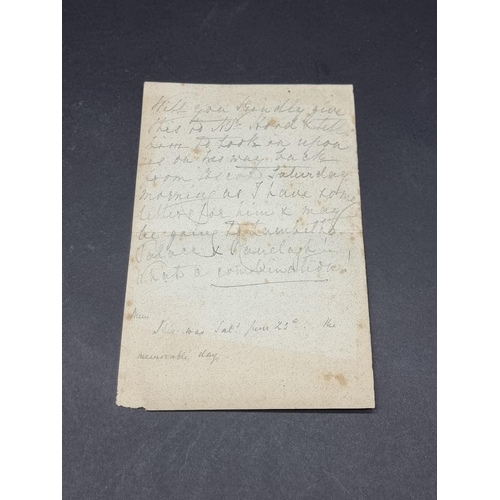 Will you kindly give
this to Mr. Hood & tell
him to look on upon
us on his way back
from Ascot Saturday
morning as I have some
letters for him & may
be going to Lambeth
Palace & Ranelagh!
What a combination.
This was Sat. June 23d. the
memorable day.